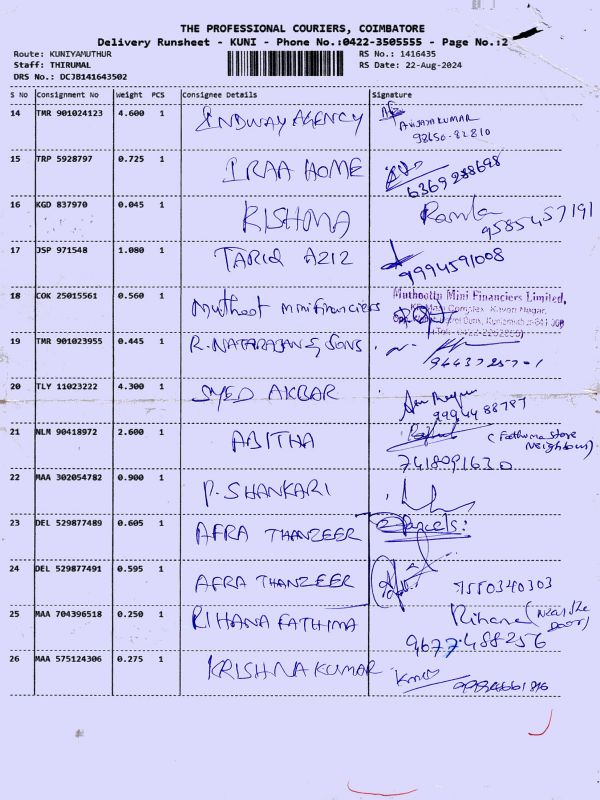 THE PROFESSIONAL COURIERS, COIMBATORE
Delivery Runsheet - KUNI - Phone No.:0422-3505555 - Page No.:2
Route: KUNIYAMUTHUR
RS No.: 1416435
Staff: THIRUMAL
RS Date: 22-Aug-2024
DRS No.: DCJB141643502
S No Consignment No Weight PCS Consignee Details Signature
14 TMR 901024123 4.600 1 INDWAY AGENCY
A VIJAYAKUMAR
98650-82810
15 TRP 5928797 0.725 1 IRAA HOME
6369288698
16 KGD 837970 0.045 1 RISHMA Ramla
9585457191
17 JSP 971548 1.080 1 TARIQ AZIZ
9994591008
18 COK 25015561 0.560 1 Muthoot minifinanciers Muthoottu Mini Financiers Limited,
19 TMR 901023955 0.445 1 R. NATARAJAN & SONS
20 TLY 11023222 4.300 1 SYED AKBAR
99944 88787
21 NLM 90418972 2.600 1 ABITHA (Fathima Store
Neighbour)
7418091630
22 MAA 302054782 0.900 1 P. SHANKARI
23 DEL 529877489 0.605 1 AFRA THANZEER 2 Parcels:
24 DEL 529877491 0.595 1 AFRA THANZEER 7550340303
25 MAA 704396518 0.250 1 RIHANA FATHIMA Rihana (Near the
Door)
9677488256
26 MAA 575124306 0.275 1 KRISHNA KUMAR